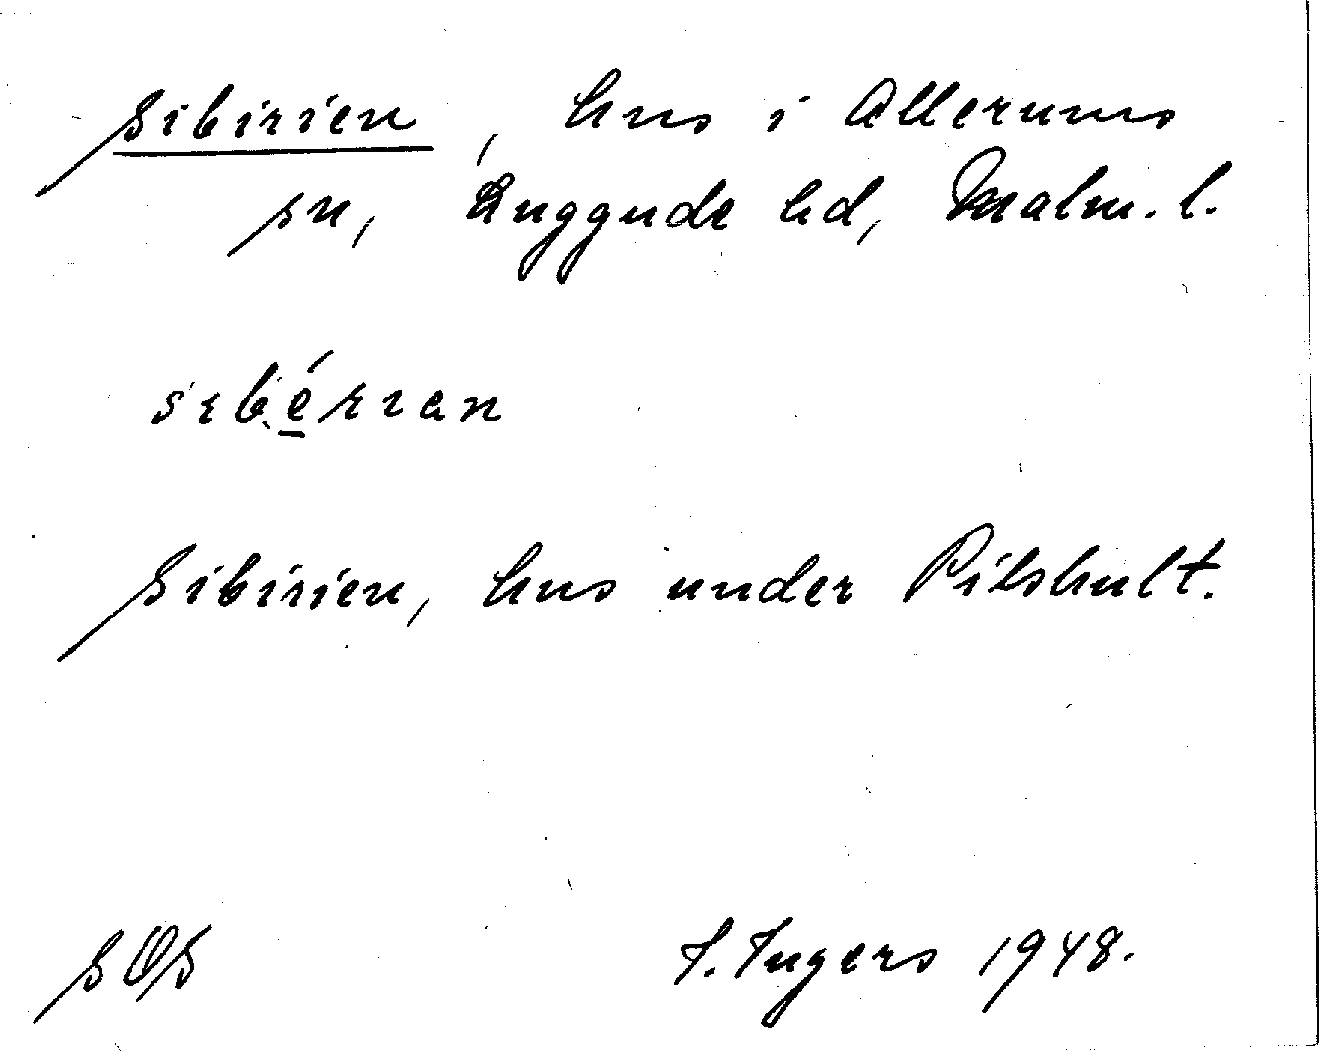 Sibirien, hus i Allerums
sn, Luggude hd, Malm. l.
sıbérıan
Sibirien, hus under Pilshult.
SOS I. Ingers 1948.